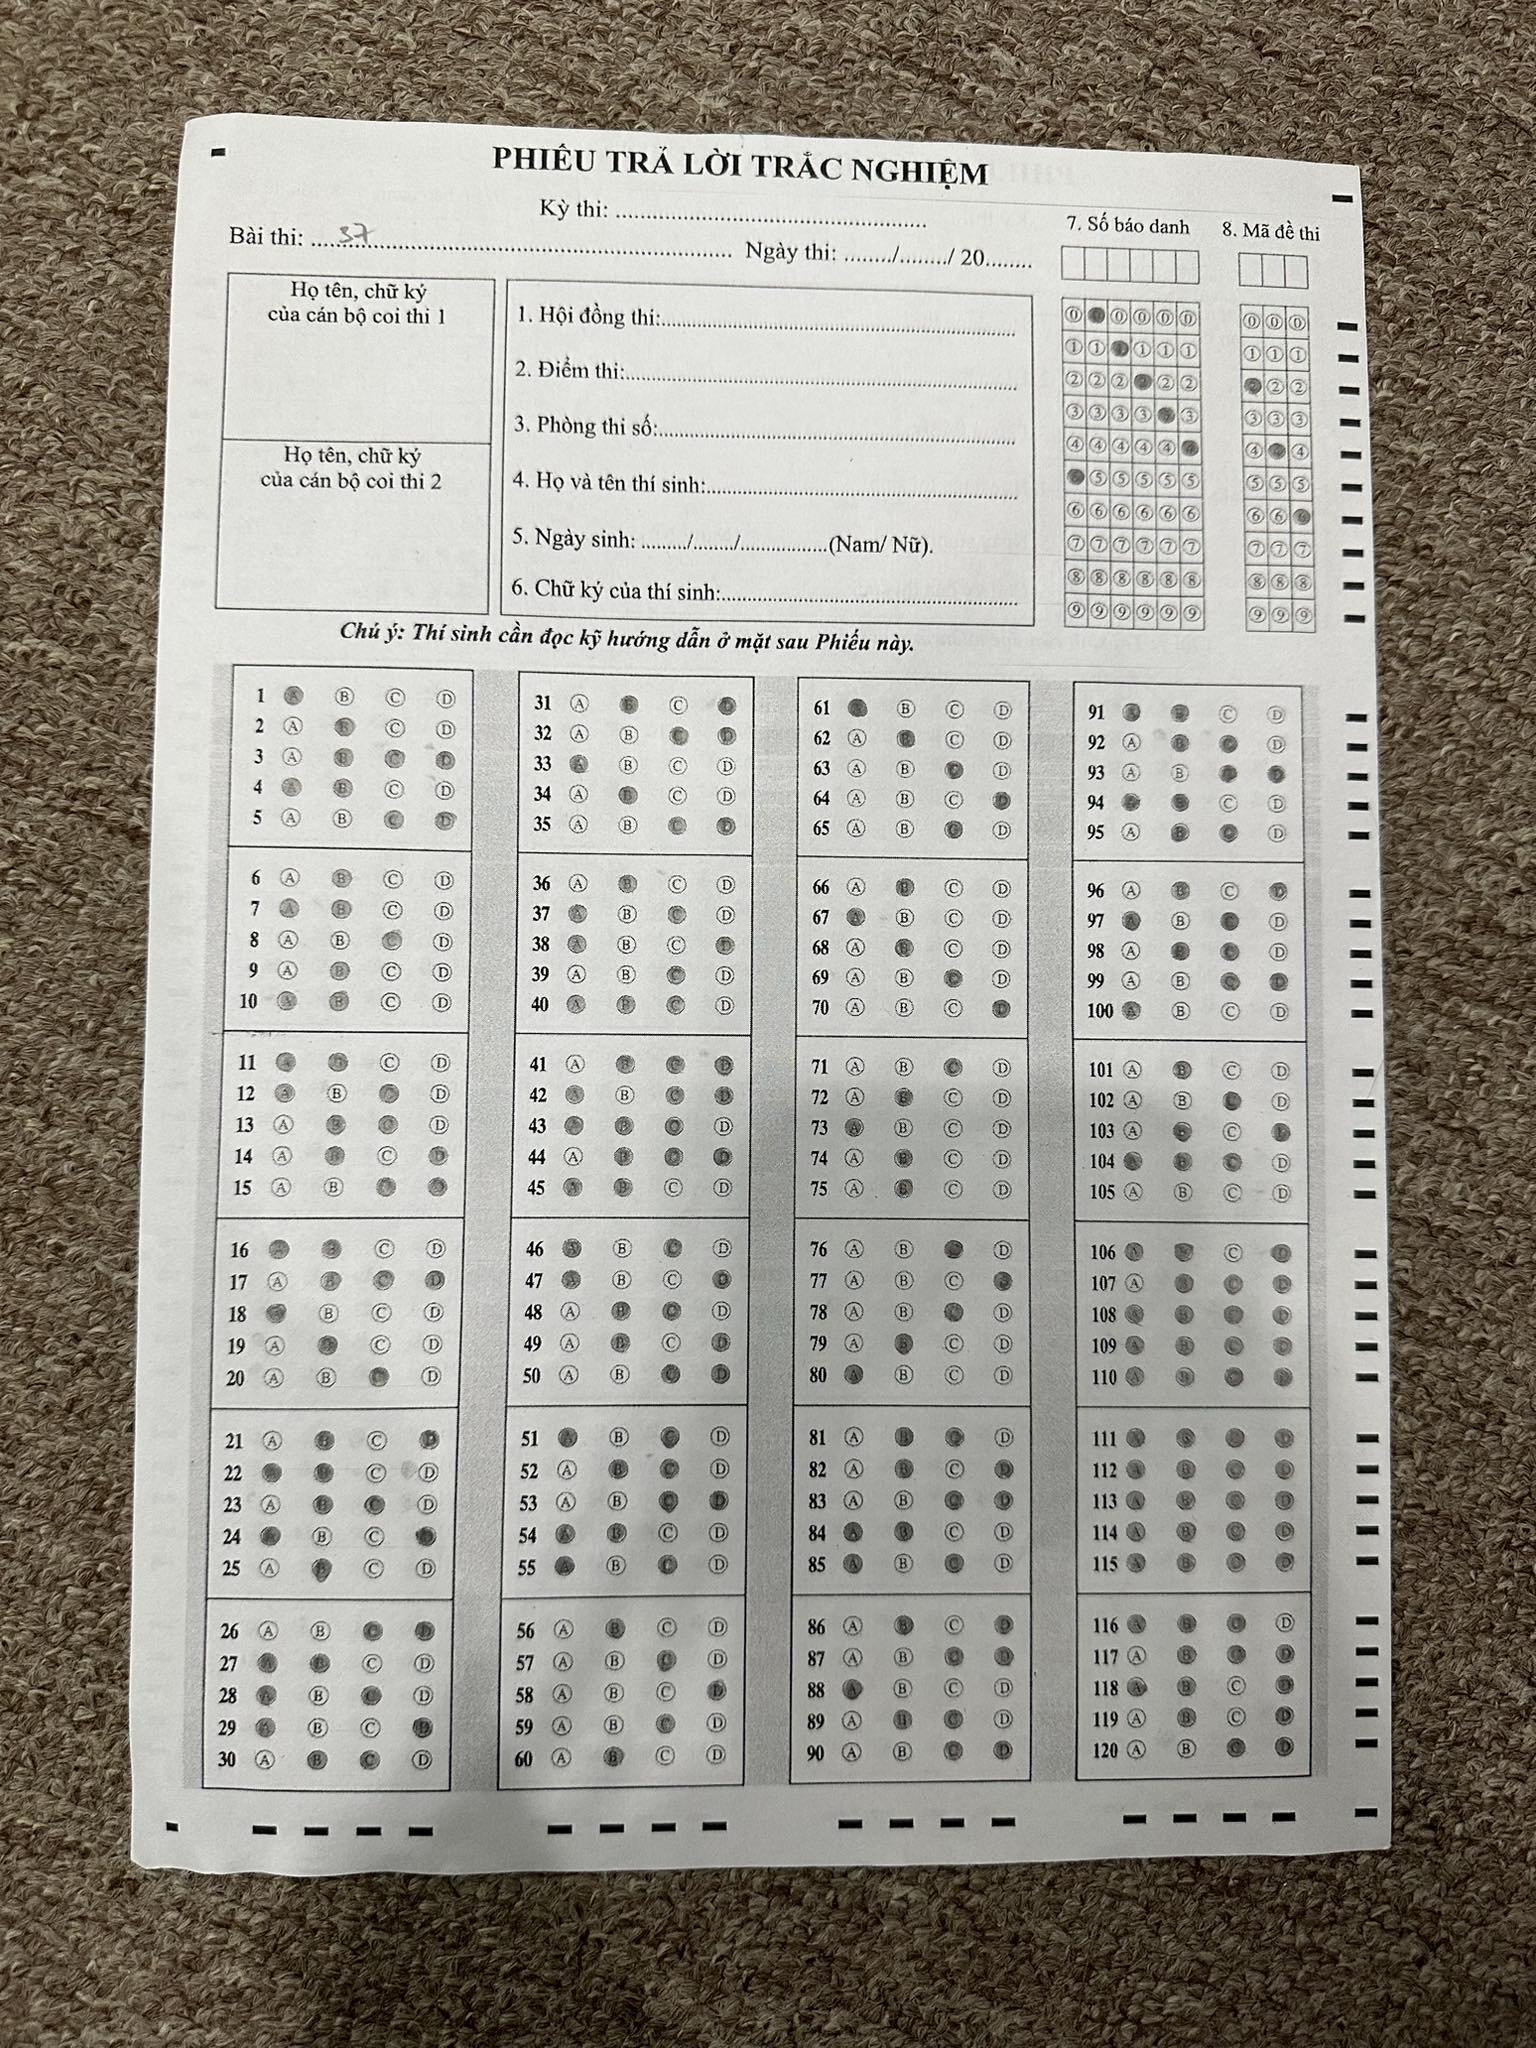 PHIẾU TRẢ LỜI TRẮC NGHIỆM
Kỳ thi: ..................................................
Bài thi: .....37.......................................................... Ngày thi: ......../......../ 20........
7. Số báo danh
8. Mã đề thi
Họ tên, chữ ký
của cán bộ coi thi 1
Họ tên, chữ ký
của cán bộ coi thi 2
1. Hội đồng thi:..........................................................
2. Điểm thi:................................................................
3. Phòng thi số:..........................................................
4. Họ và tên thí sinh:..................................................
5. Ngày sinh: ......../......./...............(Nam/ Nữ).
6. Chữ ký của thí sinh:................................................
0 0 0 0 0 0 0 0
1 1 1 1 1 1 1 1
2 2 2 2 2 2 2
3 3 3 3 3 3 3 3
4 4 4 4 4 4 4
5 5 5 5 5 5 5 5
6 6 6 6 6 6 6 6
7 7 7 7 7 7 7 7 7
8 8 8 8 8 8 8 8 8
9 9 9 9 9 9 9 9 9
Chú ý: Thí sinh cần đọc kỹ hướng dẫn ở mặt sau Phiếu này.
1 A B C D
2 A B C D
3 A B C D
4 A B C D
5 A B C D
6 A B C D
7 A B C D
8 A B C D
9 A B C D
10 A B C D
11 A B C D
12 A B C D
13 A B C D
14 A B C D
15 A B C D
16 A B C D
17 A B C D
18 B C D
19 A B C D
20 A B C D
21 A B C D
22 A B C D
23 A B C D
24 A B C D
25 A B C D
26 A B C D
27 A B C D
28 A B C D
29 A B C D
30 A B C D
31 A B C D
32 A B C D
33 A B C D
34 A B C D
35 A B C D
36 A B C D
37 A B C D
38 A B C D
39 A B C D
40 A B C D
41 A B C D
42 A B C D
43 A B C D
44 A B C D
45 A B C D
46 A B C D
47 A B C D
48 A B C D
49 A B C D
50 A B C D
51 A B C D
52 A B C D
53 A B C D
54 A B C D
55 A B C D
56 A B C D
57 A B C D
58 A B C D
59 A B C D
60 A B C D
61 A B C D
62 A B C D
63 A B C D
64 A B C D
65 A B C D
66 A B C D
67 A B C D
68 A B C D
69 A B C D
70 A B C D
71 A B C D
72 A B C D
73 A B C D
74 A B C D
75 A B C D
76 A B C D
77 A B C D
78 A B C D
79 A B C D
80 A B C D
81 A B C D
82 A B C D
83 A B C D
84 A B C D
85 A B C D
86 A B C D
87 A B C D
88 A B C D
89 A B C D
90 A B C D
91 A B C D
92 A B C D
93 A B C D
94 A B C D
95 A B C D
96 A B C D
97 A B C D
98 A B C D
99 A B C D
100 A B C D
101 A B C D
102 A B C D
103 A B C D
104 A B C D
105 A B C D
106 A B C D
107 A B C D
108 A B C D
109 A B C D
110 A B C D
111 A B C D
112 A B C D
113 A B C D
114 A B C D
115 A B C D
116 A B C D
117 A B C D
118 A B C D
119 A B C D
120 A B C D